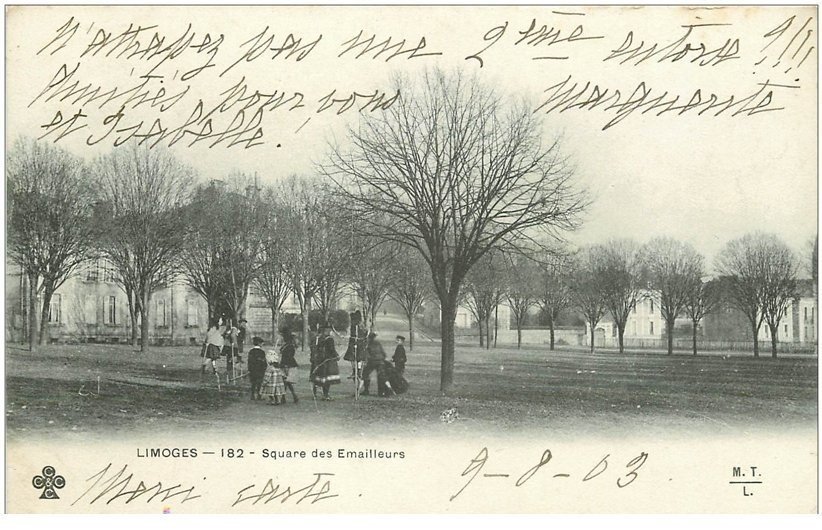 N'attrapez pas une 2ème entorse !!!
Amitiés pour vous Marguerite
et Isabelle.
LIMOGES — 182 - Square des Emailleurs
C C C C
Merci carte. 9-8-03.
M. T.
L.